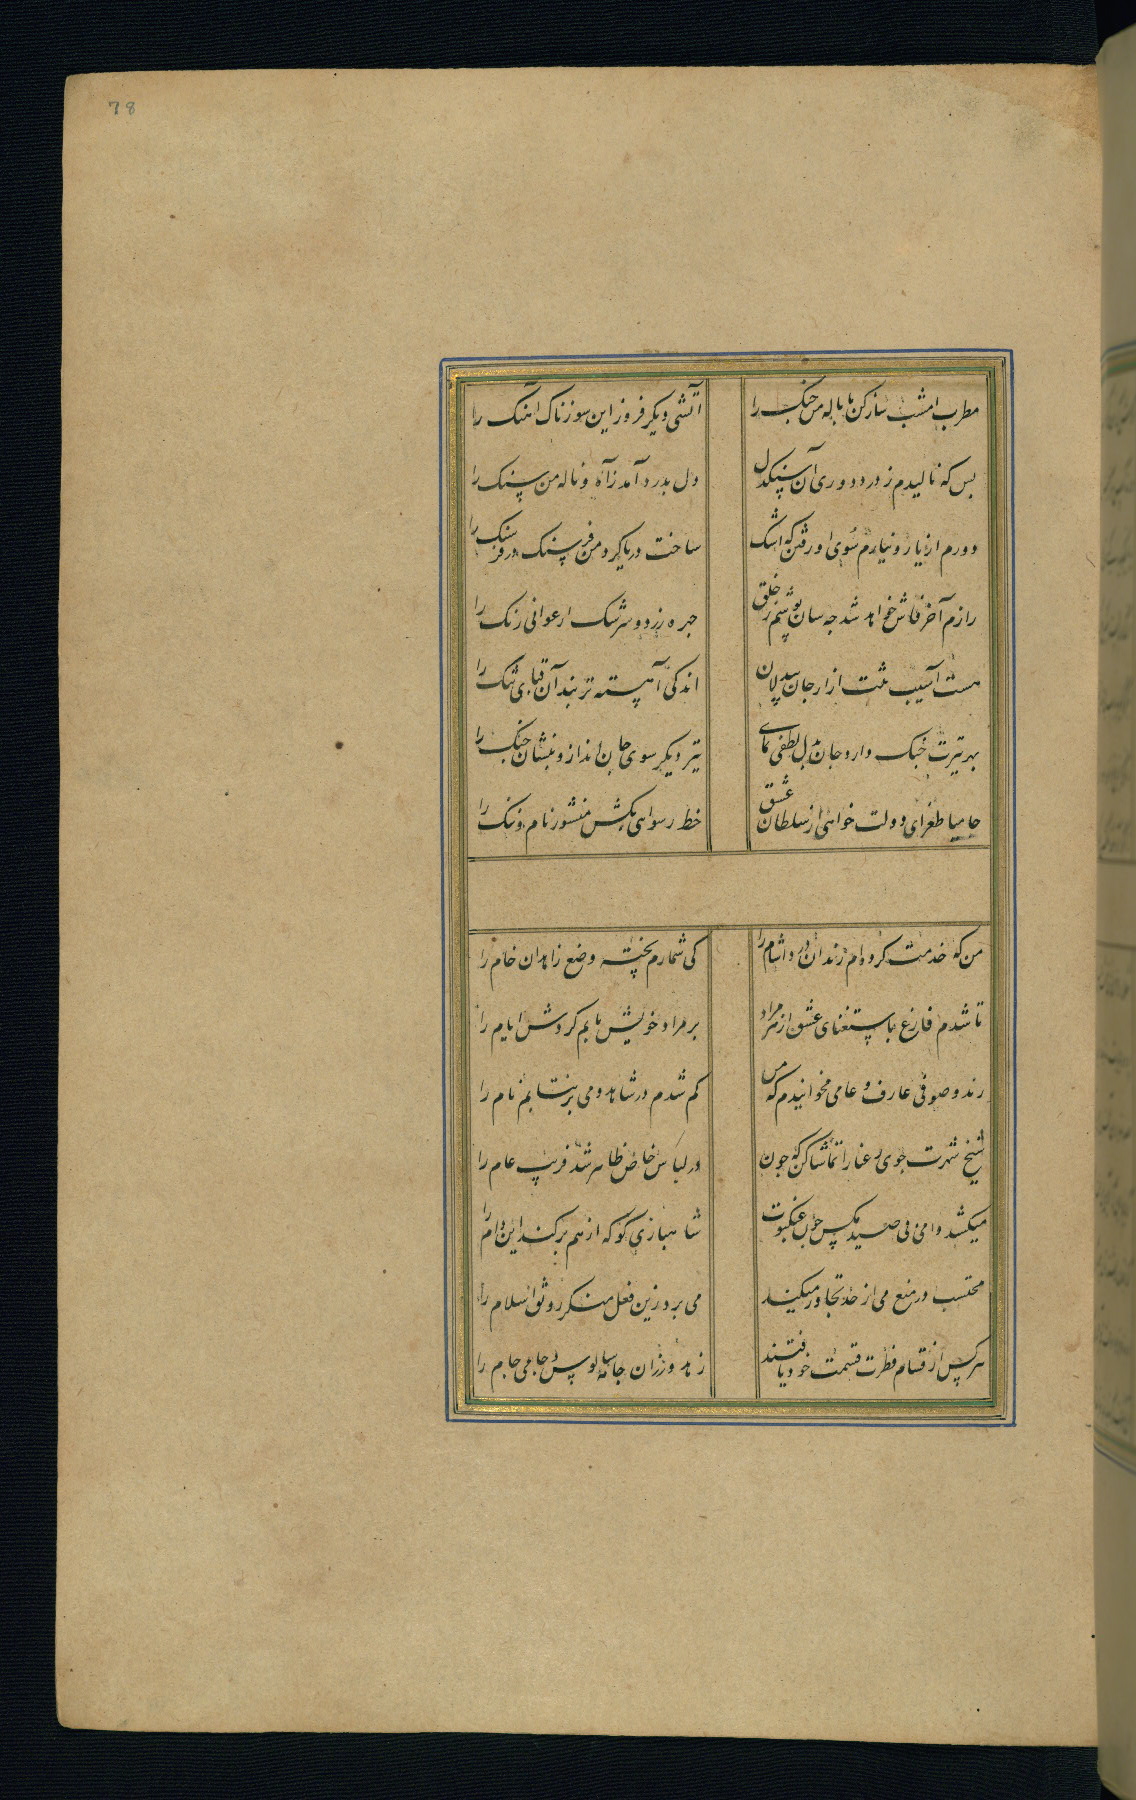 78
مطرب امشب ساز کن با ناله من چنک را
آتشی دیکر فروز این سوزناک آهنک را
بس که نالیدم ز درد دوری آن سنکدل
دل بدرد آمد ز آه و ناله من سنک را
دورم از یار و نیارم سوی او رفتن که اشک
ساخت دریا کرد من فرسنک در فرسنک را
رازم آخر فاش خواهد شد چه سان پوشم ز خلق
چهره زرد و سرشک ارغوانی رنک را
هست آسیب تنت آزار جان بیدلان
اندکی آهسته تر بند آن قبای تنک را
بهر تیرت جنک دارد جان بدل لطفی نمای
تیر دیکر سوی جان انداز و بنشان جنک را
جامیا طغرای دولت خواهی از سلطان عشق
خط رسوایی بکش منشور نام و ننک را
من که خدمت کرده ام رندان درد آشام را
کی شمارم پخته وضع زاهدان خام را
تا شدم فارغ باستغنای عشق از هر مراد
بر مراد خویش یابم کردش ایام را
رند و صوفی عارف و عامی مخوانیدم که من
کم شدم در شاهد و می برنتابم نام را
شیخ شهرت جوی رعنا را تماشا کن که چون
در لباس خاص ظاهر شد فریب عام را
میکشد دامی پی صید مکس چون عنکبوت
شاهبازی کو که از هم برکند این دام را
محتسب در منع می از حد تجاوز میکند
می برد زین فعل منکر رونق اسلام را
هر کس از قسام فطرت قسمت خود یافتند
زهد ورزان جامه سالوس و جامی جام را